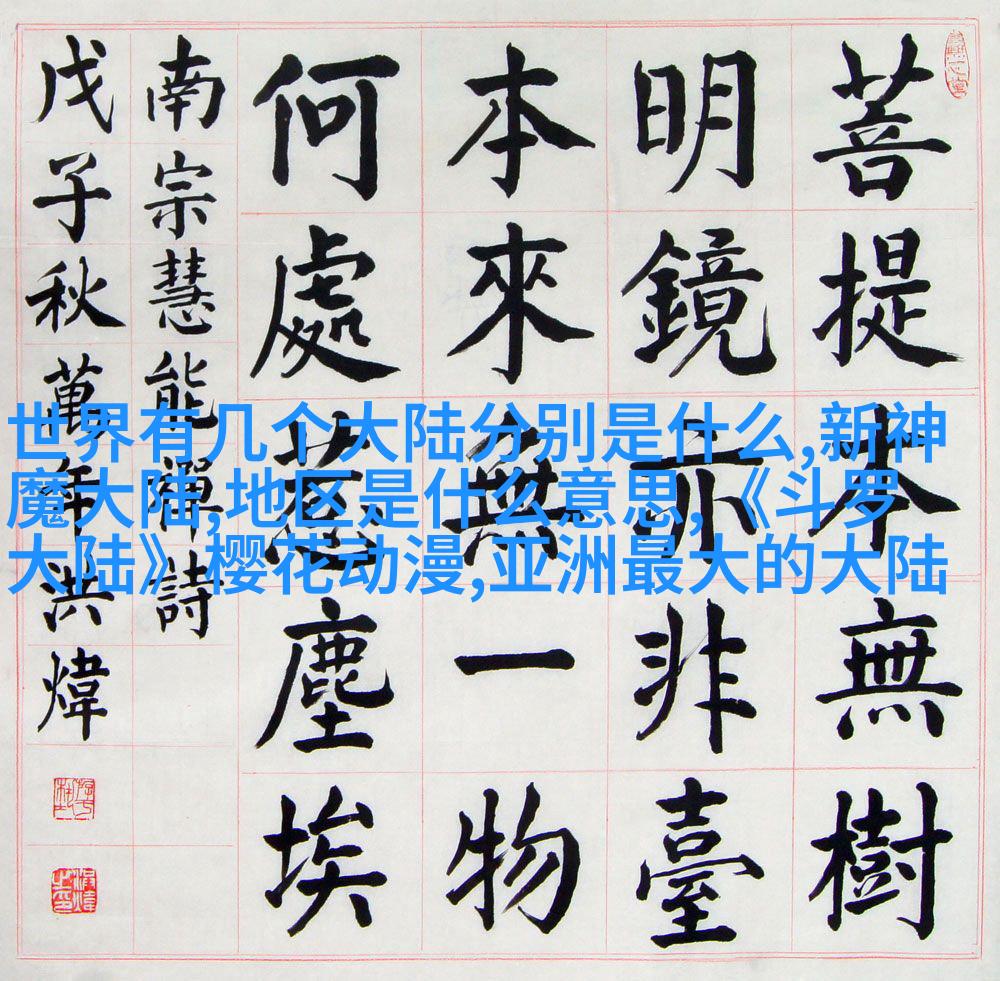 菩提本無樹
明鏡亦非臺
本來無一物
何處惹塵埃
南宗慧能禪詩
戊子秋萬年洪煒
世界有几个大陆分别是什么,新神
魔大陆,地区是什么意思,《斗罗
大陆》樱花动漫,亚洲最大的大陆